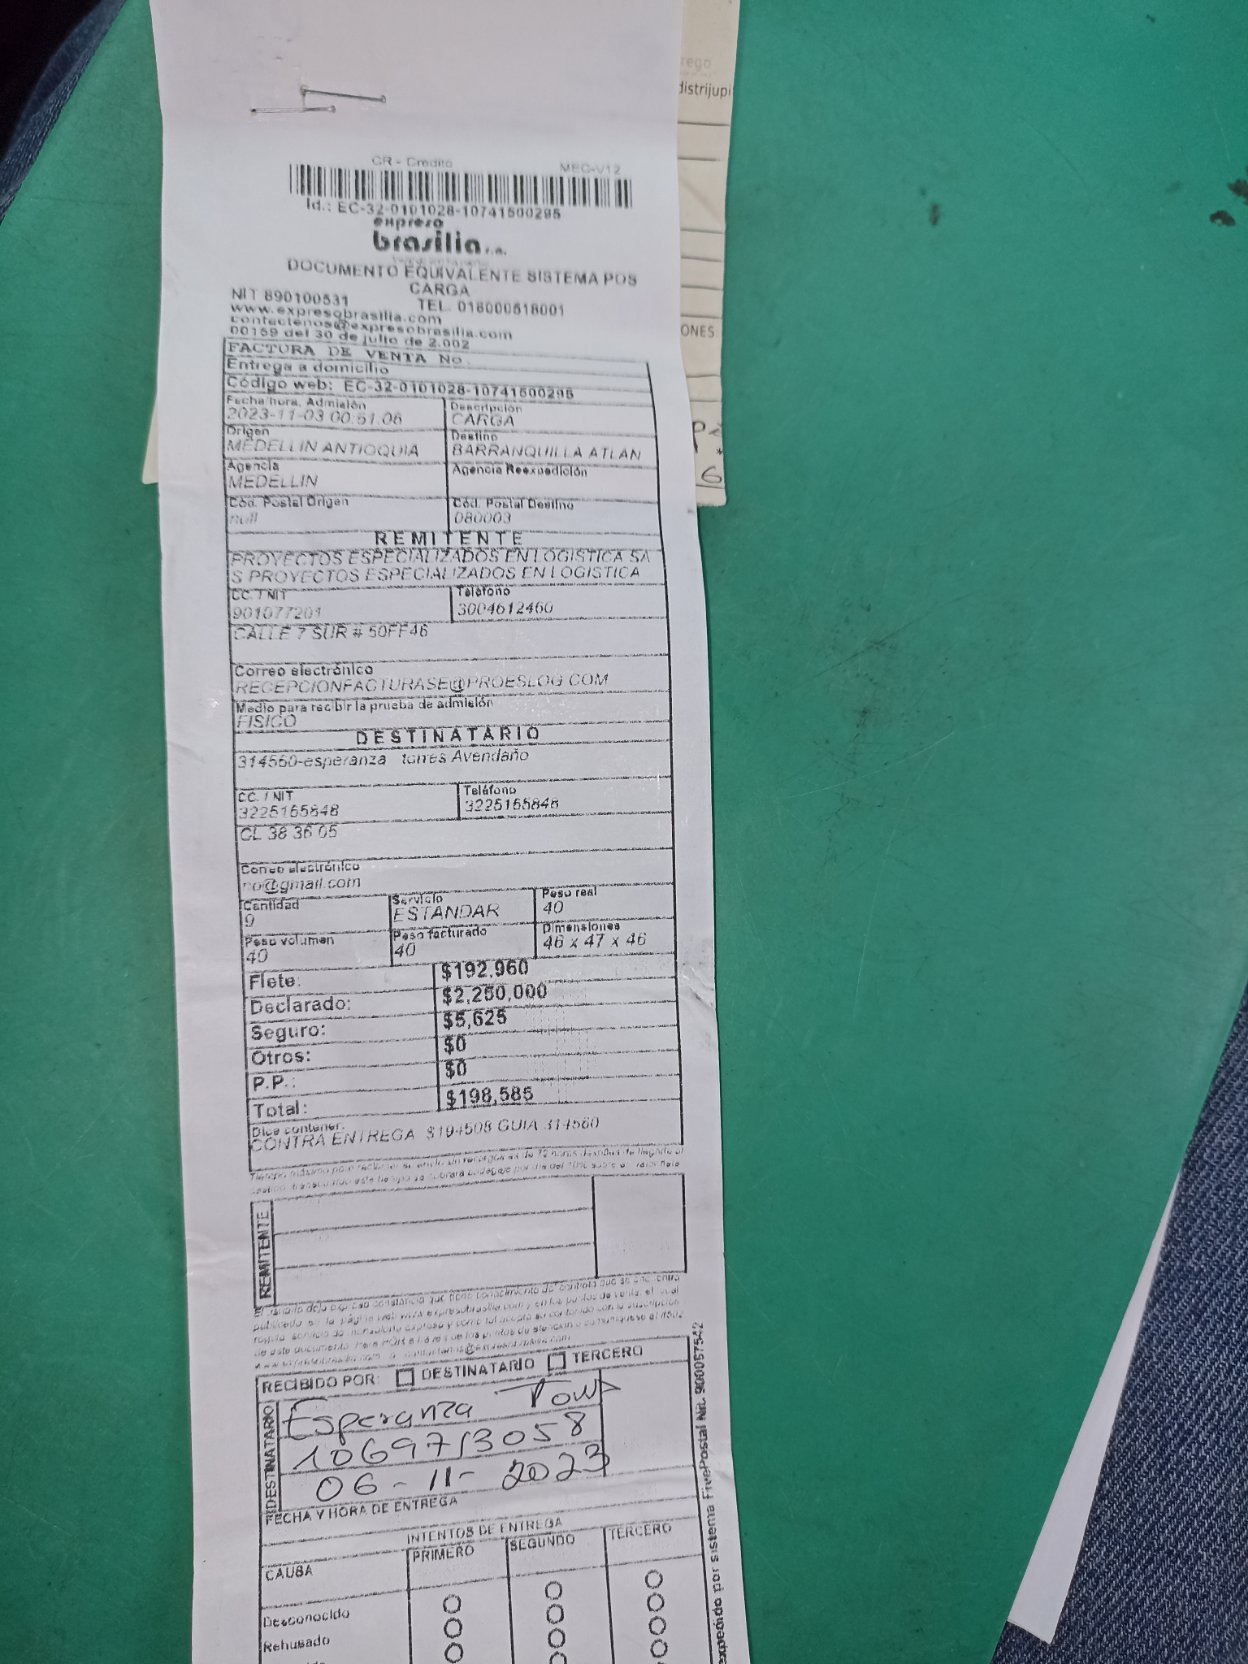 rego
distrijup
CR - Credito MEC-V12
Id.: EC-32-0101028-10741500295
expreso
brasilia s.a.
DOCUMENTO EQUIVALENTE SISTEMA POS
CARGA
NIT 890100531 TEL. 018000518001
www.expresobrasilia.com
contactenos@expresobrasilia.com
00159 del 30 de julio de 2.002
ONES
FACTURA DE VENTA No.
Entrega a domicilio
Código web: EC-32-0101028-10741500295
Fecha hora. Admisión Descripción
2023-11-03 00:51.06 CARGA
Origen Destino
MEDELLIN ANTIOQUIA BARRANQUILLA ATLAN
Agencia Agencia Reexpedición
MEDELLIN
Cód. Postal Origen Cód. Postal Destino
null 080003
REMITENTE
PROYECTOS ESPECIALIZADOS EN LOGISTICA SA
S PROYECTOS ESPECIALIZADOS EN LOGISTICA
CC. / NIT Teléfono
901077201 3004612460
CALLE 7 SUR # 50FF46
Correo electrónico
RECEPCIONFACTURASE@PROESLOG.COM
Medio para recibir la prueba de admisión
FISICO
DESTINATARIO
314560-esperanza torres Avendaño
CC. / NIT Teléfono
3225165848 3225165848
CL 38 36 05
Correo electrónico
no@gmail.com
Cantidad Servicio Peso real
9 ESTANDAR 40
Peso volumen Peso facturado Dimensiones
40 40 46 x 47 x 46
Flete: $192,960
Declarado: $2,250,000
Seguro: $5,625
Otros: $0
P.P.: $0
Total: $198,585
Dice contener:
CONTRA ENTREGA $194508 GUIA 314560
REMITENTE
RECIBIDO POR: DESTINATARIO TERCERO
DESTINATARIO
Esperanza
1069713058
06-11-2023
FECHA Y HORA DE ENTREGA
INTENTOS DE ENTREGA
CAUSA PRIMERO SEGUNDO TERCERO
Desconocido
Rehusado
expedido por sistema FivePostal Nit. 900067542